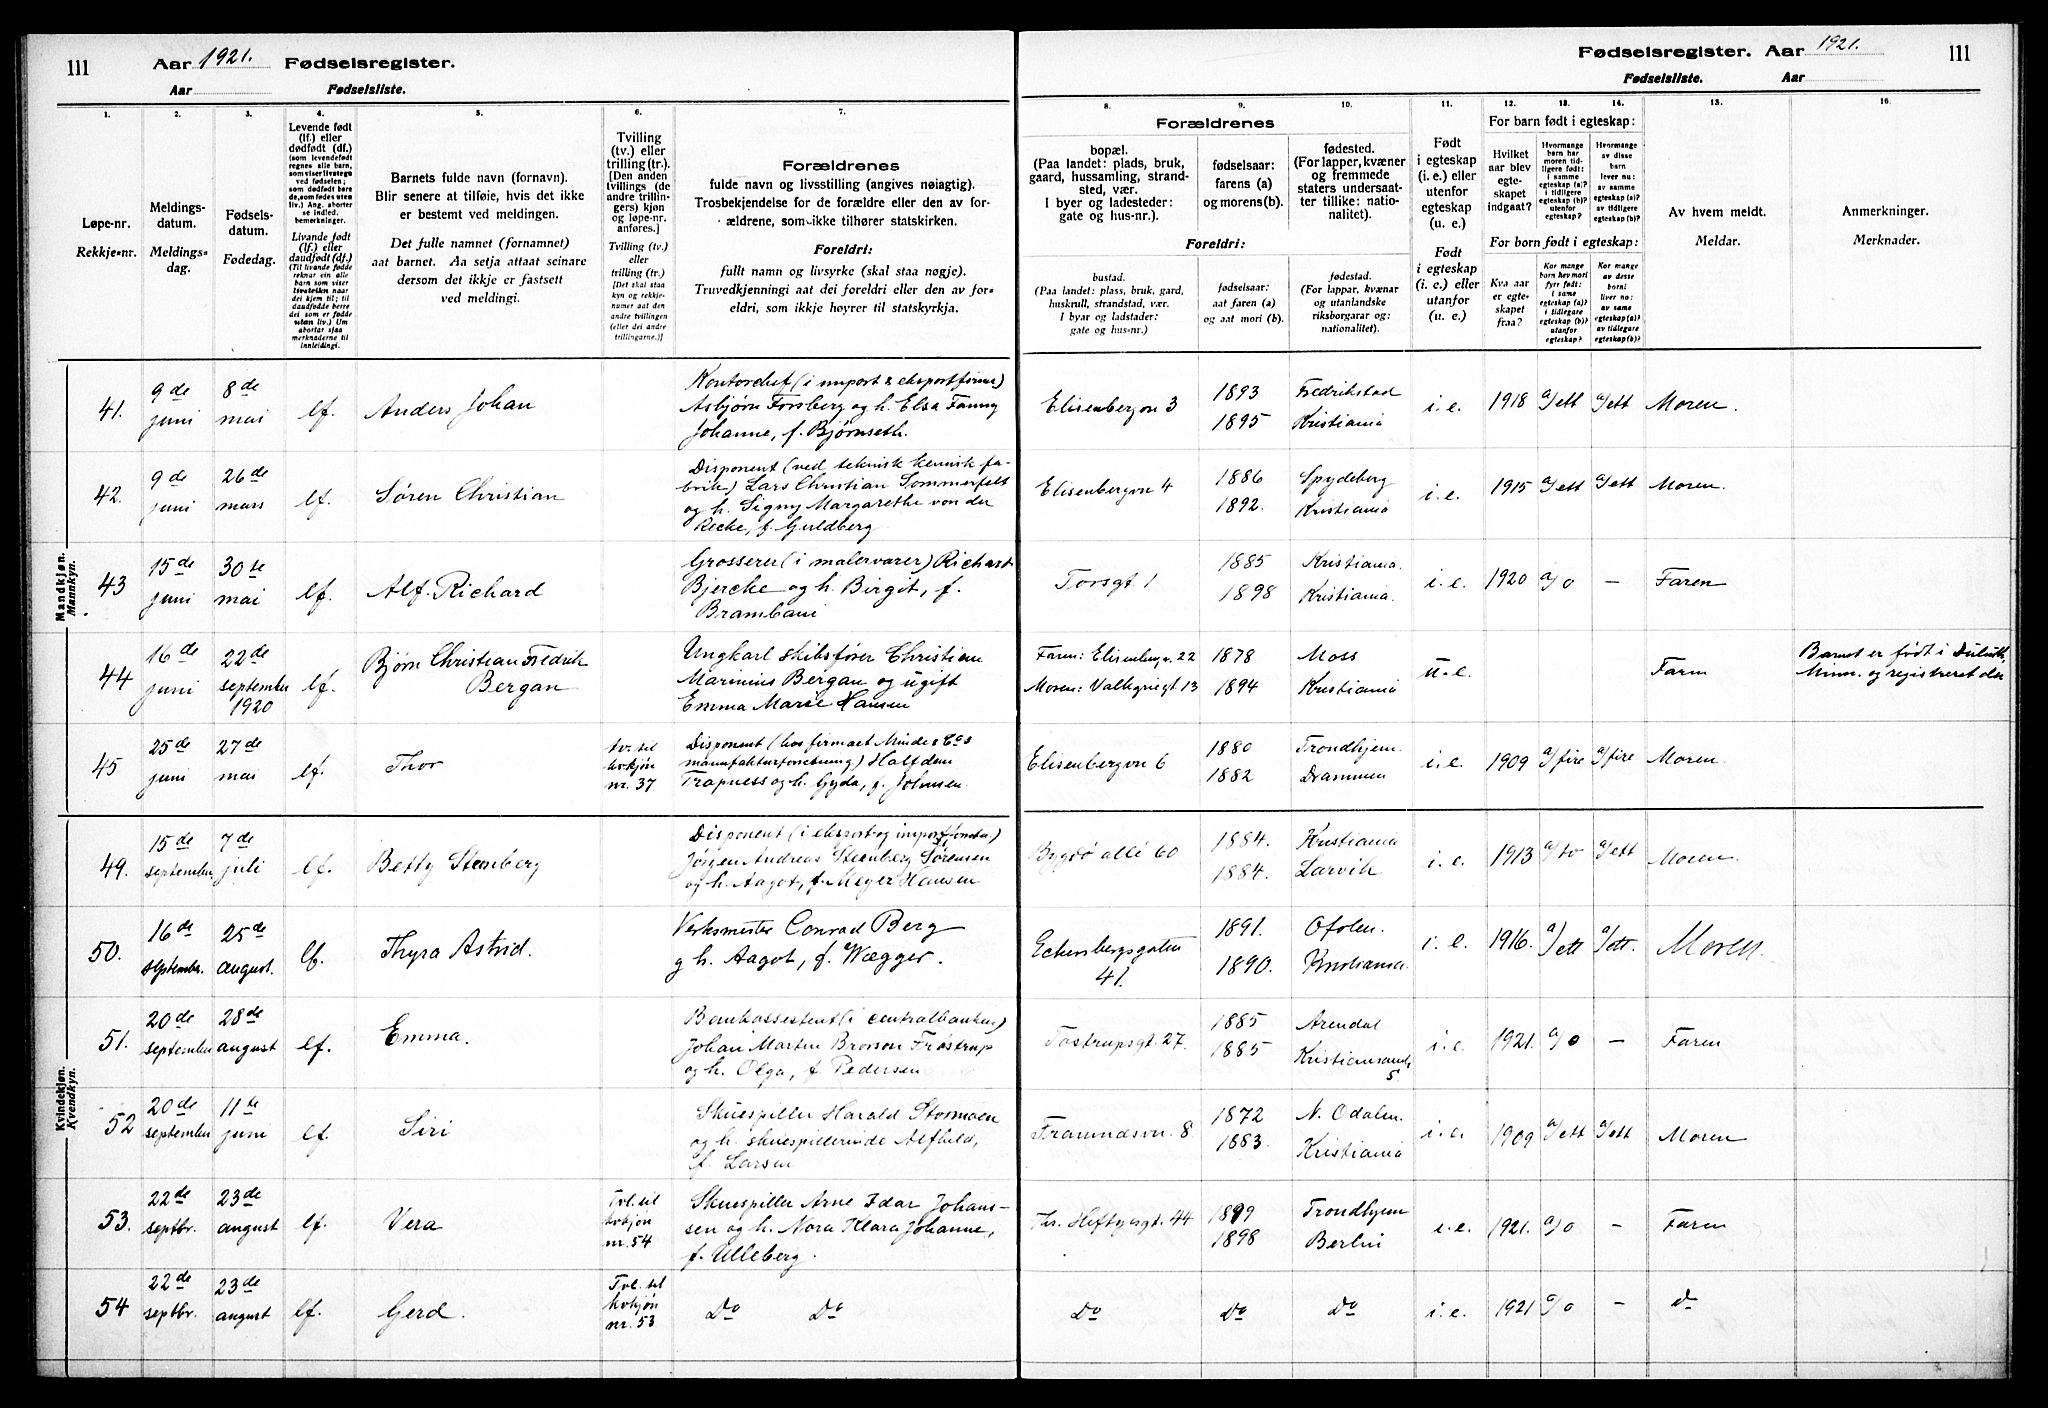 111
Aar 1921.
Fødselsregister.
Aar
Fødselsliste.
Fødselsregister. Aar 1921.
111
Fødselsliste.
Aar
1.
2.
3.
4.
5.
6.
7.
8.
9.
10.
11.
12.
13.
14.
15.
16.
Løpe-nr.
Rekkje-nr.
Meldings-
datum.
Meldings-
dag.
Fødsels-
datum.
Fødedag.
Levende født
(lf.) eller
dødfødt (df.)
(som levendefødt
regnes alle barn,
som viser livstegn
ved fødselen;
som dødfødt bare
de, som fødes uten
liv.) Ang. aborter
se indled.
bemerkninger.
Livande født
(lf.) eller
daudfødt (df.)
(Til livande fødde
reknar ein alle
barn som viser
livsteikn naar
dei kjem til; til
daudfødde berre
dei som er fødde
utan liv.) Um
abortar sjaa
merknaderne til
innleidingi.
Barnets fulde navn (fornavn).
Blir senere at tilføie, hvis det ikke
er bestemt ved meldingen.
Det fulle namnet (fornamnet)
aat barnet. Aa setja attaat seinare
dersom det ikkje er fastsett
ved meldingi.
Tvilling
(tv.) eller
trilling (tr.).
[Den anden
tvillings (de
andre trillin-
gers) kjøn
og løpe-nr.
anføres.]
Tvilling (tv.)
eller
trilling (tr.)
[Det skal staa
kyn og rekkje-
numer aat den
andre tvillingen
(eller dei andre
trillingarne.)]
Forældrenes
fulde navn og livsstilling (angives nøiagtig).
Trosbekjendelse for de forældre eller den av for-
ældrene, som ikke tilhører statskirken.
Foreldri:
fullt namn og livsyrke (skal staa nøgje).
Truvedkjenningi aat dei foreldri eller den av for-
eldri, som ikkje høyrer til statskyrkja.
Forældrenes
bopæl.
(Paa landet: plads, bruk,
gaard, hussamling, strand-
sted, vær.
I byer og ladesteder:
gate og hus-nr.).
fødselsaar:
farens (a)
og morens (b).
fødested.
(For lapper, kvæner
og fremmede
staters undersaat-
ter tillike: natio-
nalitet).
Foreldri:
bustad.
(Paa landet: plass, bruk, gard,
huskrull, strandstad, vær.
I byar og ladstader:
gate og hus-nr.)
fødselsaar:
aat faren (a)
og aat mori (b).
fødestad.
(For lappar, kvænar
og utanlandske
riksborgarar og:
nationalitet).
Født
i egteskap
(i. e.) eller
utenfor
egteskap
(u. e.)
Født
i egteskap
(i. e.) eller
utanfor
(u. e.)
For barn født i egteskap:
Hvilket
aar blev
egte-
skapet
indgaat?
Hvormange
barn har
moren tid-
ligere født:
i samme
egteskap (a)?
i tidligere
egteskap (b)?
utenfor
egteskap?
Hvormange
av disse
barn
lever nu:
av samme
egteskap (a)?
av tidligere
egteskap (b)?
For born født i egteskap:
Kva aar
er egte-
skapet
fraa?
Kor mange
born hev mori
fyrr født:
i same
egteskap (a)?
i tidlegare
egteskap (b)?
utanfor
egteskap?
Kor mange
av desse
born
liver no:
av same
egteskap (a)?
av tidlegare
egteskap (b)?
Av hvem meldt.
Meldar.
Anmerkninger.
Merknader.
Mandkjøn.
Mannkyn.
41.
9de
juni
8de
mai
lf.
Anders Johan
Kontorchef (i import & eksportfirma)
Asbjørn Forsberg og h. Elsa Fanny
Johanne, f. Bjørnseth.
Elisenbergvn 3
1893
1895
Fredrikstad
Kristiania
i. e.
1918
a/ett
a/ett
Moren.
42.
9de
juni
26de
mars
lf.
Søren Christian
Disponent (ved teknisk kemisk fa-
brik) Lars Christian Sommerfelt
og h. Signy Margarethe von der
Recke, f. Guldberg
Elisenbergvn 4
1886
1892.
Spydeberg
Kristiania
i. e.
1915
a/ett
a/ett
Moren.
43
15de
juni
30te
mai
lf.
Alf Richard
Grosserer (i malervarer) Richard
Bjercke og h. Birgit, f.
Brambani
Torsgt 1
1885
1898
Kristiania.
Kristiania.
i. e.
1920
a/0
—
Faren
44
16de
juni
22de
september
1920
lf.
Bjørn Christian Fredrik
Bergan
Ungkarl skibsfører Christian
Marinius Bergan og ugift
Emma Marie Hansen
Faren: Elisenbergv. 22
Moren: Valkyriegt 13
1878
1894
Moss
Kristiania
u. e.
Faren
Barnet er født i Duluth,
Minn. og registreret der
45
25de
juni
27de
mai
lf.
Thor
tv. til
kvkjøn
nr. 37
Disponent (hos firmaet Minde & Cos
manufakturforretning) Halfdan
Trapness og h. Gyda, f. Johnsen.
Elisenbergvn 6
1880
1882
Trondhjem.
Drammen
i. e.
1909
a/fire
a/fire
Moren.
Kvindekjøn.
Kvendkyn.
49.
15de
september
7de
juli
lf.
Betty Stenberg
Disponent (i eksport og importforretn.)
Jørgen Andreas Stenberg Sørensen
og h. Aagot, f. Meyer Hansen
Bygdø allé 60
1884.
1884.
Kristiania
Larvik
i. e.
1913
a/to
a/ett
Moren.
50.
16de
september.
25de
august.
lf.
Thyra Astrid.
Verksmester Conrad Berg
g h. Aagot, f. Wægger.
Eckersbergsgaten
41.
1891.
1890.
Ofoten.
Kristiania.
i. e.
1916.
a/ett
a/ett.
Moren.
51.
20de
september
28de
august
lf.
Emma.
Bankassistent (i centralbanken)
Johan Martin Brosson Frøstrup
og h. Olga, f. Pedersen
Tostrupsgt. 27.
1885
1885
Arendal
Kristiansand
S.
i. e.
1921.
a/0
—
Faren
52
20de
september
11te
juni
lf.
Siri
Skuespiller Harald Stormoen
og h. skuespillerinde Alfhild,
f. Larsen
Framnæsvn. 8.
1872
1883.
N. Odalen.
Kristiania
i. e.
1909
a/ett
a/ett
Moren
53.
22de
septbr.
23de
august
lf.
Vera
Tvl. til
kvkjøn
nr. 54
Skuespiller Arne Idar Johans-
sen og h. Nora Klara Johanne,
f. Ulleberg.
Th. Heftyesgt. 44
1899
1898
Trondhjem
Berlin
i. e.
1921.
a/0
—
Faren
54
22de
septbr.
23de
august
lf.
Gerd.
Tvl. til
kvkjøn
nr. 53
Do Do
Do
Do
Do
i. e.
1921
a/0
—
Do